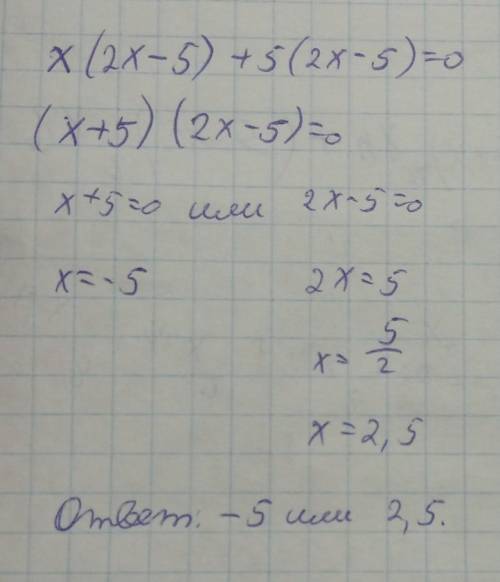 x(2x-5)+5(2x-5)=0
(x+5)(2x-5)=0
x+5=0 или 2x-5=0
x=-5 2x=5
x=5/2
x=2,5
Ответ: -5 или 2,5.